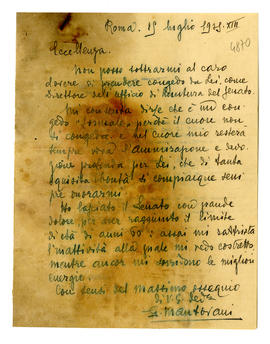 Roma, 15 luglio 1935. XIII
4870
Eccellenza.
Non posso sottrarmi al caro
dovere di prendere congedo da Lei, come
Direttore dell'Ufficio di Questura del Senato.
Mi consenta dire che è un con-
gedo formale, perché il cuore non
si congeda e nel cuore mio resterà
tempre viva l'ammirazione e devo-
zione profonda per Lei, che di tanta
squisita bontà si compiacque sem
pre onorarmi.
Ho lasciato il Senato con grande
dolore, per aver raggiunto il limite
di età di anni 60: assai mi rattrista
l'inattività alla quale mi vedo costretto,
mentre ancor mi sorridono le migliori
energie.
Con sensi del massimo ossequio
di V. E. dev.
G. Mantovani